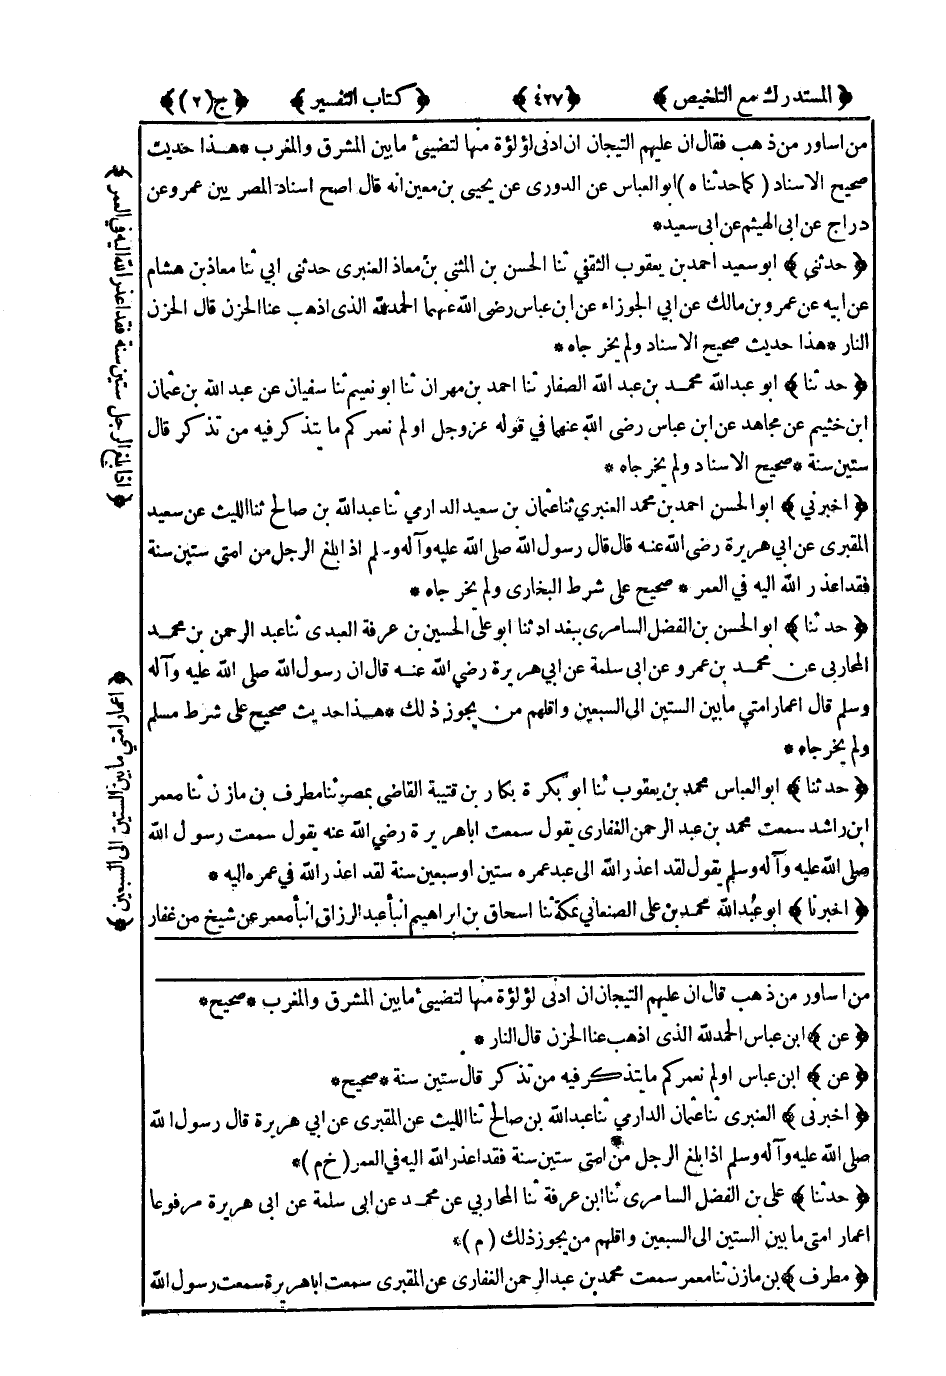 ﴿ المستدرك مع التلخيص ﴾ ﴿ ٤٢٧ ﴾ ﴿ كتاب التفسير ﴾ ﴿ ج (٢) ﴾
من اساور من ذهب فقال ان عليهم التيجان ان ادنى لؤلؤة منها لتضيئ ما بين المشرق والمغرب * هذا حديث
صحيح الاسناد ( كما حدثنا ه ) ابو العباس عن الدورى عن يحيى بن معين انه قال اصح اسناد المصريين عمرو عن
دراج عن ابى الهيثم عن ابى سعيد *
﴿ حدثني ﴾ ابو سعيد احمد بن يعقوب الثقفي ثنا الحسن بن المثنى بن معاذ العنبرى حدثنى ابي ثنا معاذ بن هشام
عن ابيه عن عمرو بن مالك عن ابي الجوزاء عن ابن عباس رضى الله عنهما الحمد لله الذى اذهب عنا الحزن قال الحزن
النار * هذا حديث صحيح الاسناد ولم يخرجاه *
﴿ حدثنا ﴾ ابو عبد الله محمد بن عبد الله الصفار ثنا احمد بن مهران ثنا ابو نعيم ثنا سفيان عن عبد الله بن عثمان
ابن خثيم عن مجاهد عن ابن عباس رضى الله عنهما في قوله عز وجل اولم نعمركم ما يتذكر فيه من تذكر قال
ستين سنة * صحيح الاسناد ولم يخرجاه *
﴿ اخبرني ﴾ ابو الحسن احمد بن محمد العنبري ثنا عثمان بن سعيد الدارمي ثنا عبد الله بن صالح ثنا الليث عن سعيد
المقبرى عن ابي هريرة رضى الله عنه قال قال رسول الله صلى الله عليه وآله وسلم اذا بلغ الرجل من امتى ستين سنة
فقد اعذر الله اليه في العمر * صحيح على شرط البخارى ولم يخرجاه *
﴿ حدثنا ﴾ ابو الحسن بن الفضل السامرى ببغداد ثنا ابو على الحسين بن عرفة العبدى ثنا عبد الرحمن بن محمد
المحاربي عن محمد بن عمرو عن ابى سلمة عن ابى هريرة رضي الله عنه قال ان رسول الله صلى الله عليه وآله
وسلم قال اعمار امتي ما بين الستين الى السبعين واقلهم من يجوز ذلك * هذا حديث صحيح على شرط مسلم
ولم يخرجاه *
﴿ حدثنا ﴾ ابو العباس محمد بن يعقوب ثنا ابو بكرة بكار بن قتيبة القاضى بمصر ثنا مطرف بن مازن ثنا معمر
ابن راشد سمعت محمد بن عبد الرحمن الغفارى يقول سمعت اباهريرة رضي الله عنه يقول سمعت رسول الله
صلى الله عليه وآله وسلم يقول لقد اعذر الله الى عبد عمره ستين او سبعين سنة لقد اعذر الله في عمره اليه *
﴿ اخبرنا ﴾ ابو عبد الله محمد بن على الصنعاني بمكة ثنا اسحاق بن ابراهيم انبأ عبد الرزاق انبأ معمر عن شيخ من غفار
من اساور من ذهب قال ان عليهم التيجان ان ادنى لؤلؤة منها لتضيئ ما بين المشرق والمغرب * صحيح *
﴿ عن ﴾ ابن عباس الحمد لله الذى اذهب عنا الحزن قال النار *
﴿ عن ﴾ ابن عباس اولم نعمركم ما يتذكر فيه من تذكر قال ستين سنة * صحيح *
﴿ اخبرنى ﴾ العنبرى ثنا عثمان الدارمي ثنا عبد الله بن صالح ثنا الليث عن المقبرى عن ابي هريرة قال رسول الله
صلى الله عليه وآله وسلم اذا بلغ الرجل من امتى ستين سنة فقد اعذر الله اليه في العمر ( خ م ) *
﴿ حدثنا ﴾ على بن الفضل السامرى ثنا ابن عرفة ثنا المحاربي عن محمد عن ابى سلمة عن ابى هريرة مرفوعا
اعمار امتى ما بين الستين الى السبعين واقلهم من يجوز ذلك ( م ) *
﴿ مطرف ﴾ بن مازن ثنا معمر سمعت محمد بن عبد الرحمن الغفارى عن المقبرى سمعت اباهريرة سمعت رسول الله
﴿ اذا بلغ الرجل ستين سنة فقد اعذر الله اليه في العمر ﴾
﴿ اعمار امتي ما بين الستين الى السبعين ﴾